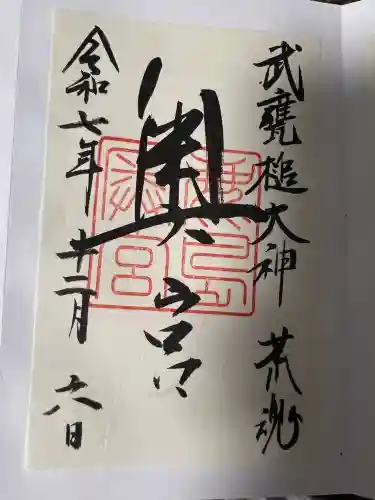 武甕槌大神 荒魂
奥宮
令和七年 十二月 六日